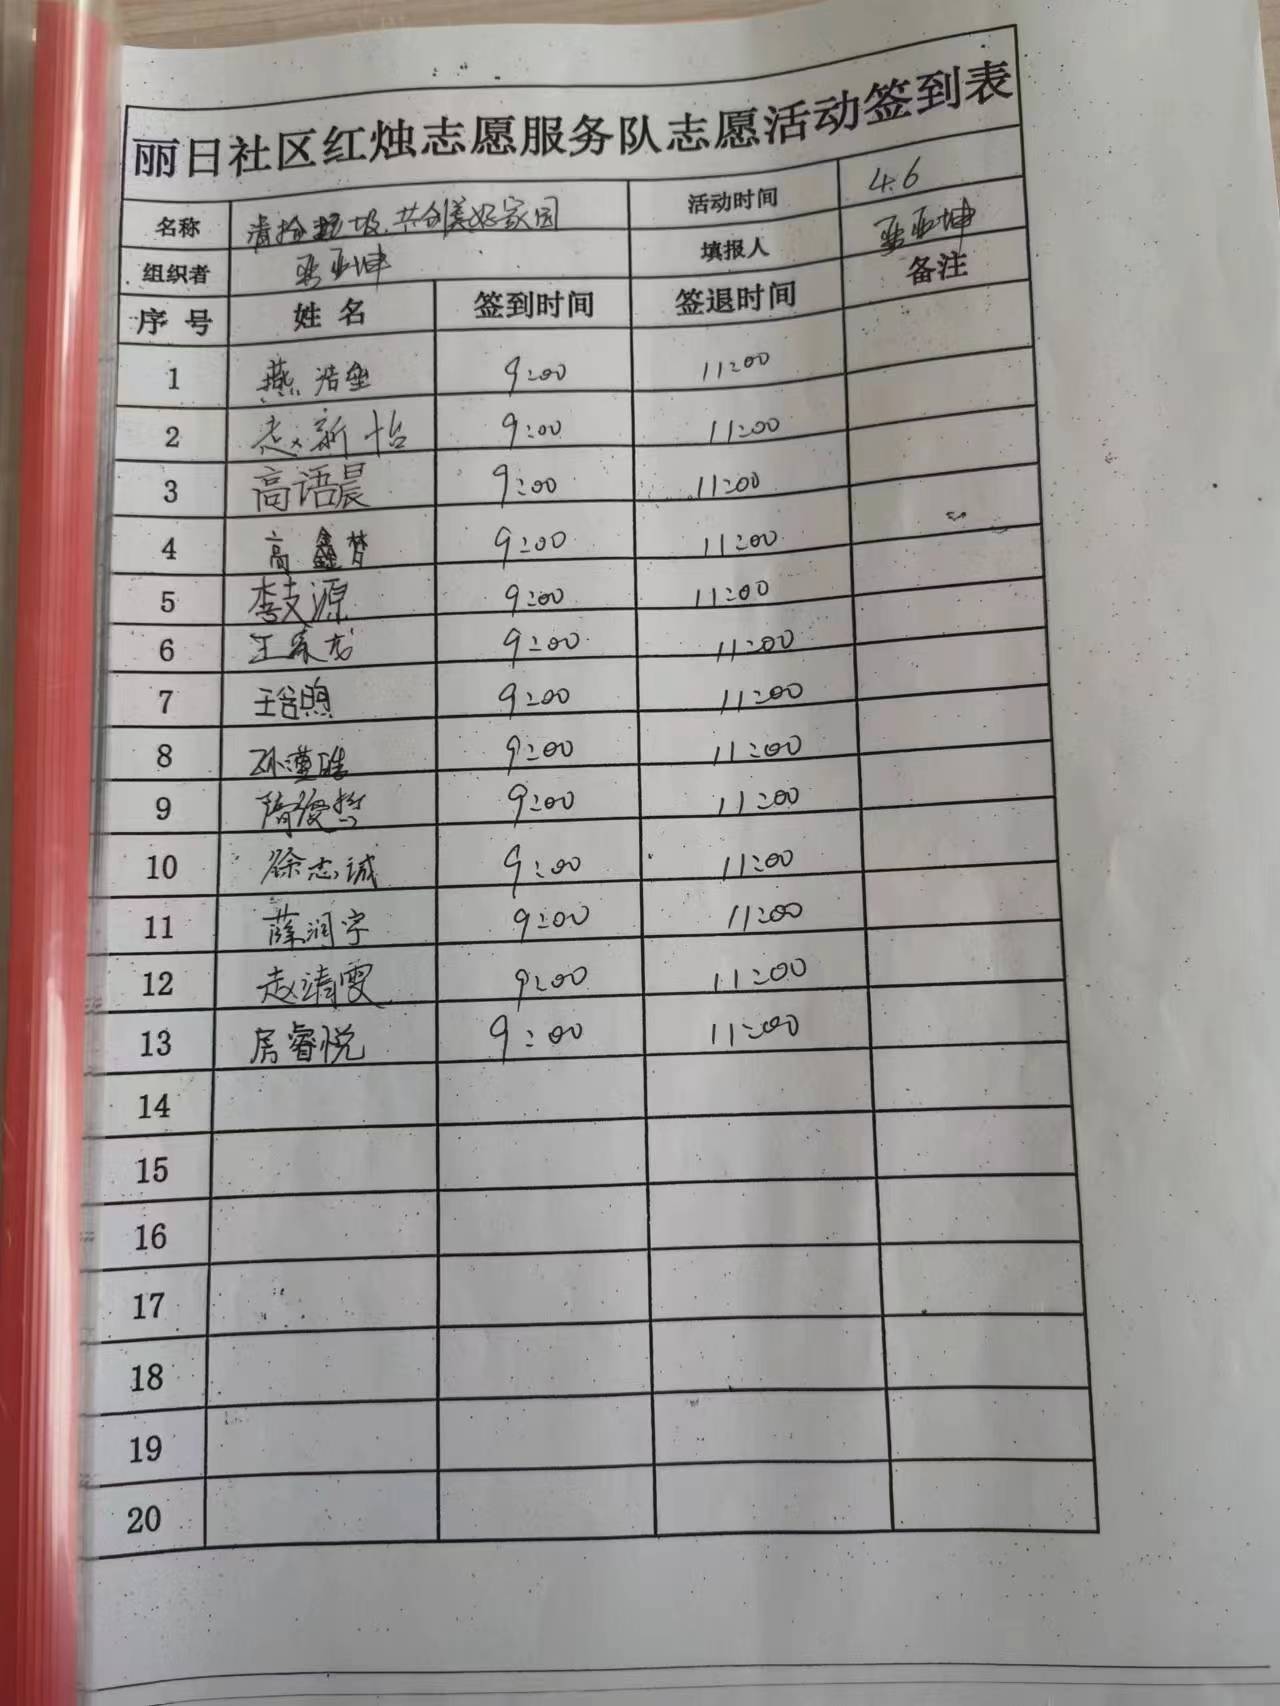 丽日社区红烛志愿服务队志愿活动签到表
名称 清捡垃圾,共创美好家园 活动时间 4.6
组织者 亚坤 填报人 亚坤
序号 姓名 签到时间 签退时间 备注
1 燕浩垒 9:00 11:00
2 赵新怡 9:00 11:00
3 高语晨 9:00 11:00
4 高鑫梦 9:00 11:00
5 李支源 9:00 11:00
6 王 9:00 11:00
7 王 9:00 11:00
8 孙 9:00 11:00
9 隋俊哲 9:00 11:00
10 徐志诚 9:00 11:00
11 薛润宇 9:00 11:00
12 赵靖雯 9:00 11:00
13 房睿悦 9:00 11:00
14
15
16
17
18
19
20